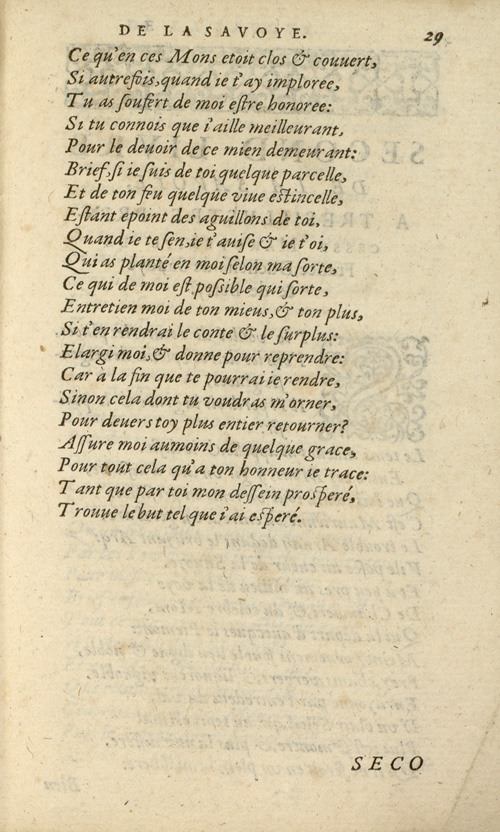 DE LA SAVOYE. 29
Ce qu'en ces Mons etoit clos & couuert,
Si autrefois, quand ie t'ay imploree,
Tu as soufert de moi estre honoree:
Si tu connois que i'aille meilleurant,
Pour le deuoir de ce mien demeurant:
Brief, si ie suis de toi quelque parcelle,
Et de ton feu quelque viue estincelle,
Estant epoint des aguillons de toi,
Quand ie te sen, ie t'auise & ie t'oi,
Qui as planté en moi selon ma sorte,
Ce qui de moi est possible qui sorte,
Entretien moi de ton mieus, & ton plus,
Si t'en rendrai le conte & le surplus:
Elargi moi, & donne pour reprendre:
Car à la fin que te pourrai ie rendre,
Sinon cela dont tu voudras m'orner,
Pour deuers toy plus entier retourner?
Assure moi aumoins de quelque grace,
Pour tout cela qu'a ton honneur ie trace:
Tant que par toi mon dessein prosperé,
Trouue le but tel que i'ai esperé.
SECO